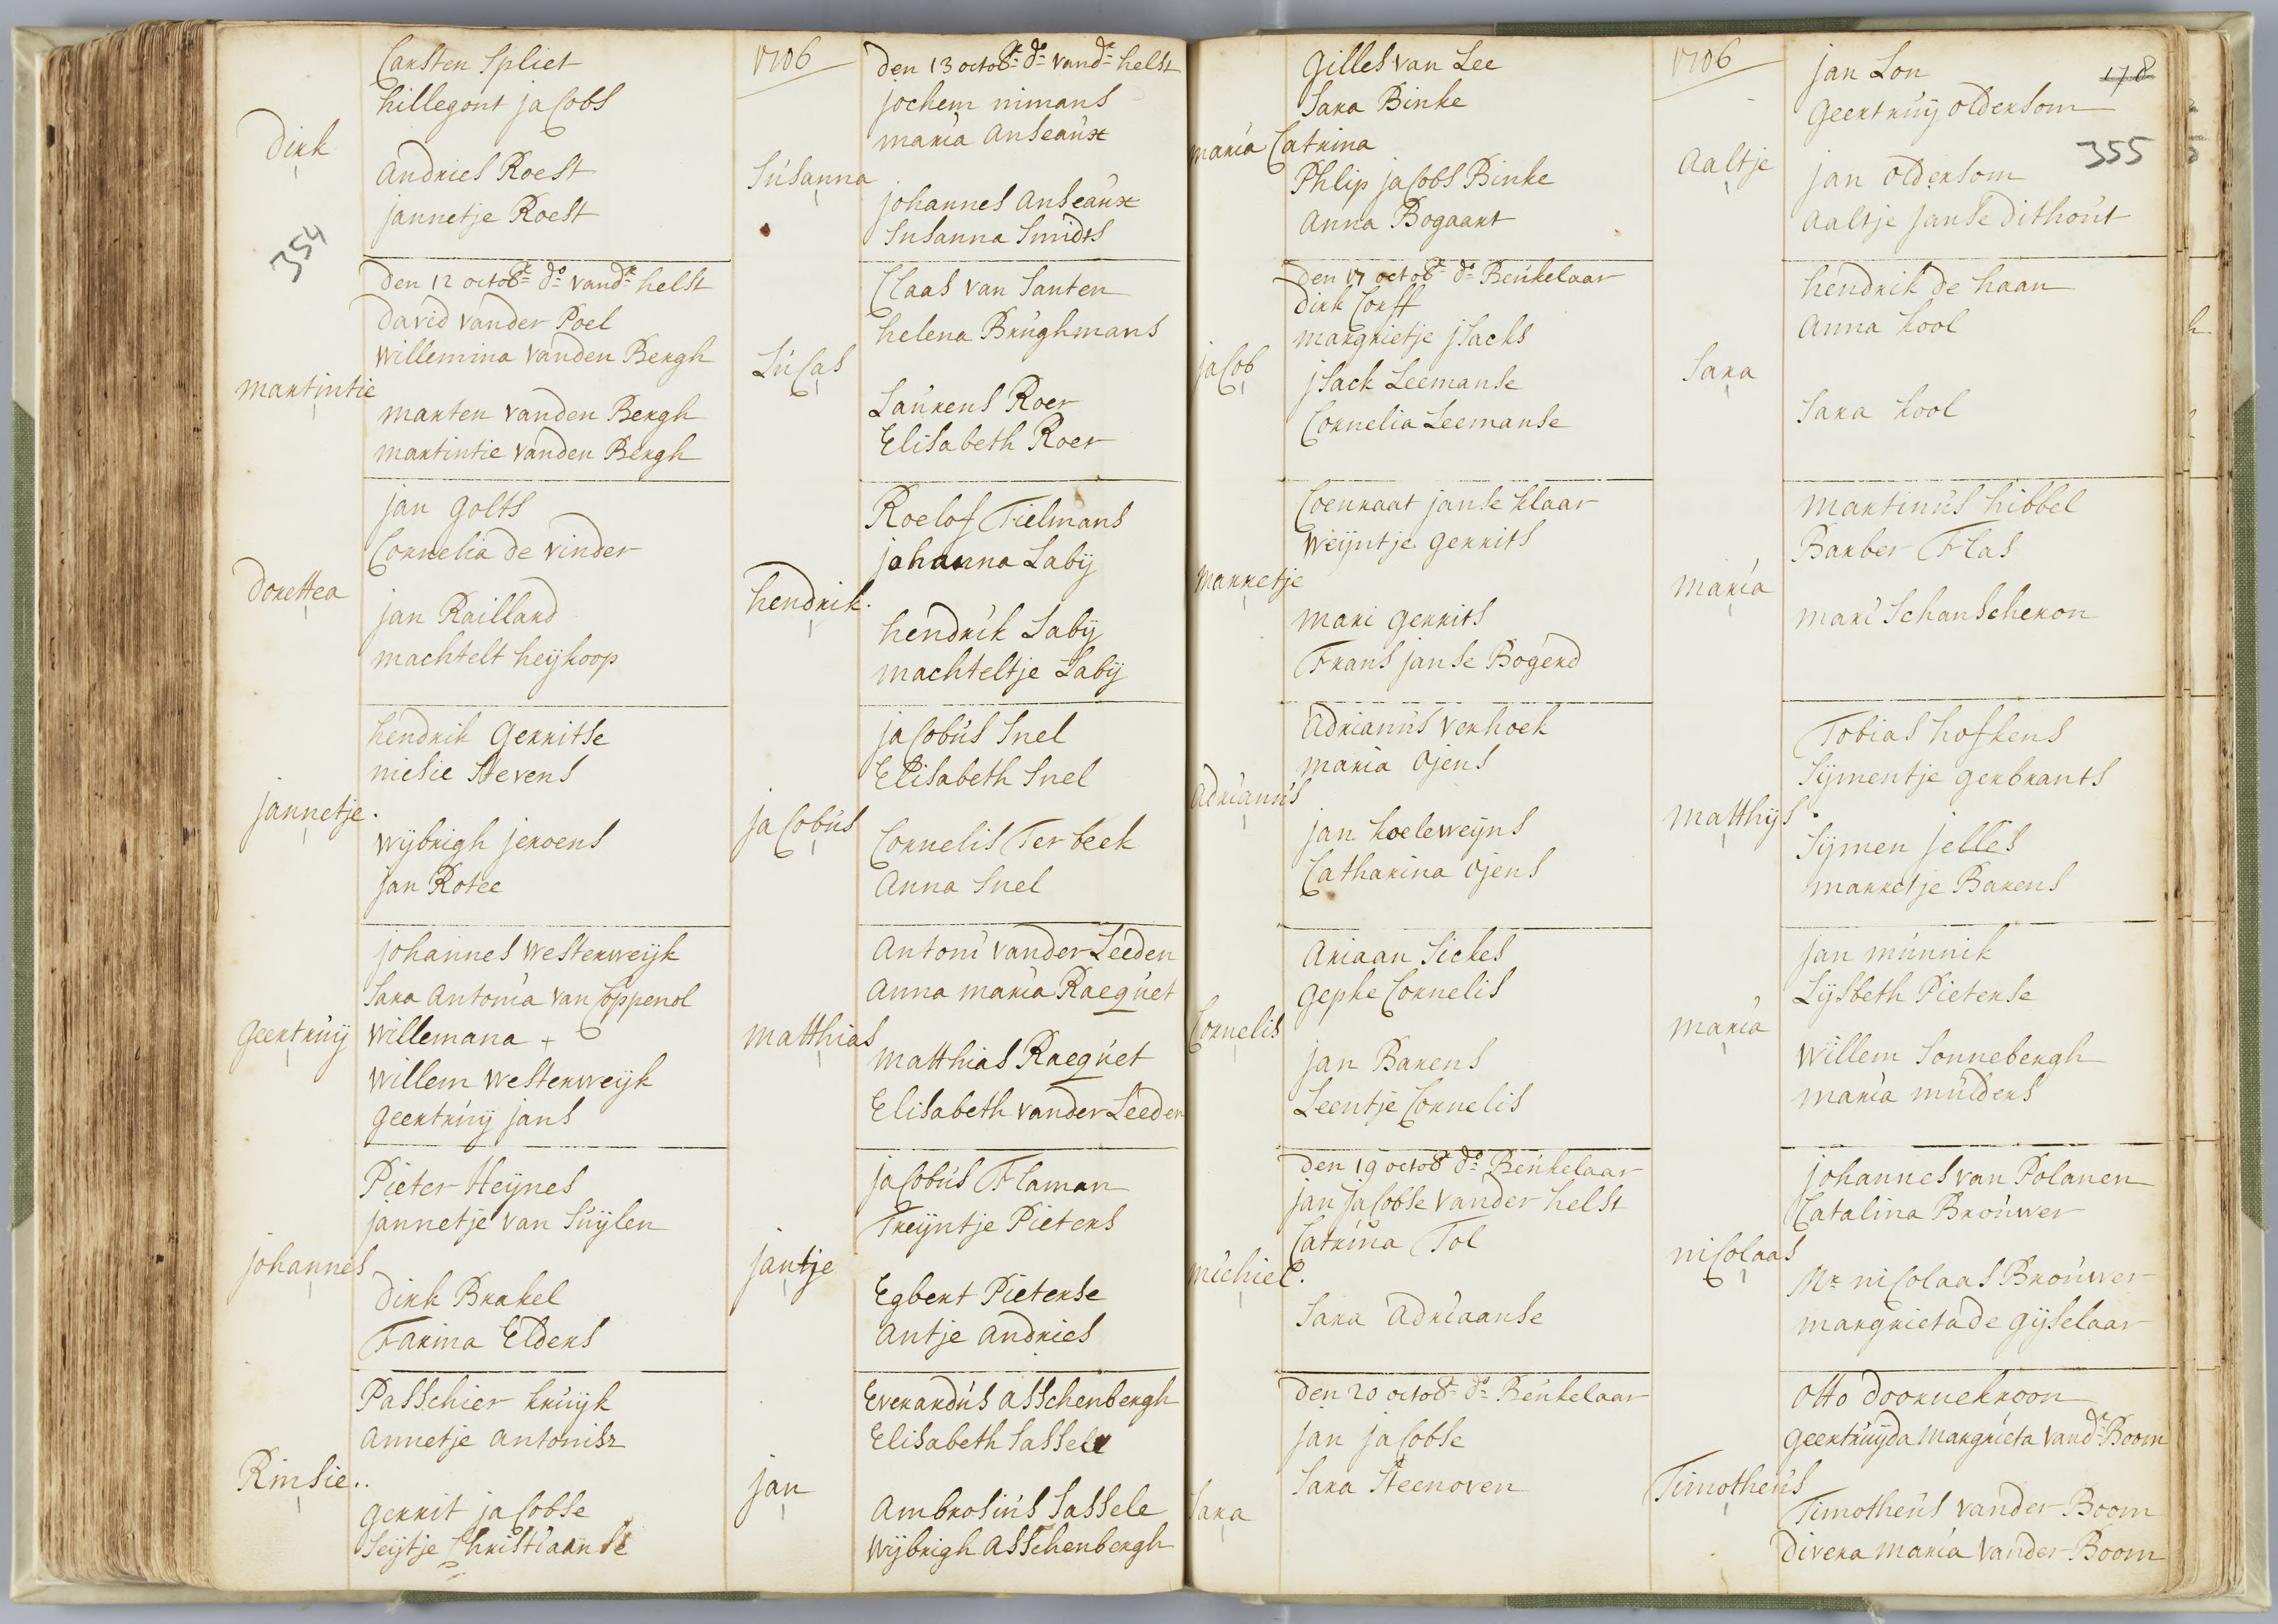 Carsten Spliet
hillegont jacobs
Dirk
Andries Roest
jannetje Roest
354
Den 12 octobr do vandr helst
David vander Poel
Willemina vanden Bergh
martintie
marten vanden Bergh
martintie vanden Bergh
jan Golts
Cornelia de vinder
Dorettea
jan Raillard
machtelt heijkoop
hendrik Gerritse
niesie Stevens
jannetje.
wijbrigh jeroens
jan Rotee
johannes westerweijk
Sara Antonia van Coppenol
geertruij
Willemana +
Willem westerweijk
geertruij jans
Pieter Heijnes
jannetje van Suijlen
johannes
Dirk Brakel
Farina Elders
Passchier kruijk
Annetje Antonisz
Rinsie..
gerrit jacobse
Seijtje Christiaanse
1706
Den 13 octobr do vandr helst
jochem nimans
maria Anseaux
Susanna
johannes Anseaux
Susanna Smidts
Claas van Santen
helena Brughmans
Lucas
Laurens Roer
Elisabeth Roer
Roelof Tielmans
johanna Labij
hendrik.
hendrik Labij
machteltje Labij
jacobus Snel
Elisabeth Snel
jacobus
Cornelis Ter beek
Anna Snel
Antoni vander Leeden
Anna maria Racquet
matthias
matthias Racquet
Elisabeth vander Leeden
jacobus Flaman
Treijntje Pieters
jantje
Egbert Pieterse
Antje Andries
Everardus Asschenbergh
Elisabeth Sassele
jan
Ambrosius Sassele
Wijbrigh Asschenbergh
Gilles van Lee
Sara Binke
maria Catrina
Phlip jacobs Binke
Anna Bogaart
Den 17 octobr do Beukelaar
Dirk Corff
margrietje jsacks
jacob
jsack Leemanse
Cornelia Leemanse
Coenraat janse klaar
Weijntje gerrits
marretje
mari gerrits
Frans janse Bogerd
Adrianus verhoek
maria Ojens
Adrianus
jan koeleweijns
Catharina Ojens
Ariaan Sickes
gepke Cornelis
Cornelis
jan Barens
Leentje Cornelis
Den 19 octobr do Beukelaar
jan jacobse vander helst
Catrina Tol
michiel.
Sara Adriaanse
Den 20 octobr do Beukelaar
jan jacobse
Sara Steenoven
Sara
1706
178
355
jan Lon
Geertruij oldersom
Aaltje
jan oldersom
Aaltje Janse Dithout
hendrik de haan
Anna kool
Sara
Sara kool
martinus hibbel
Barber Flas
maria
mari Schanscheron
Tobias hofkens
Sijmentje gerbrants
matthijs.
Sijmen jelles
marretje Barens
jan munnik
Lijsbeth Pieterse
maria
Willem Sonnebergh
maria mulders
johannes van Polanen
Catalina Brouwer
nicolaas
Mr nicolaas Brouwer
margrieta de gijselaar
Otto Doornekroon
geertruijda margrieta vandr Boom
Timotheus
Timotheus vander Boom
Divera maria vander Boom